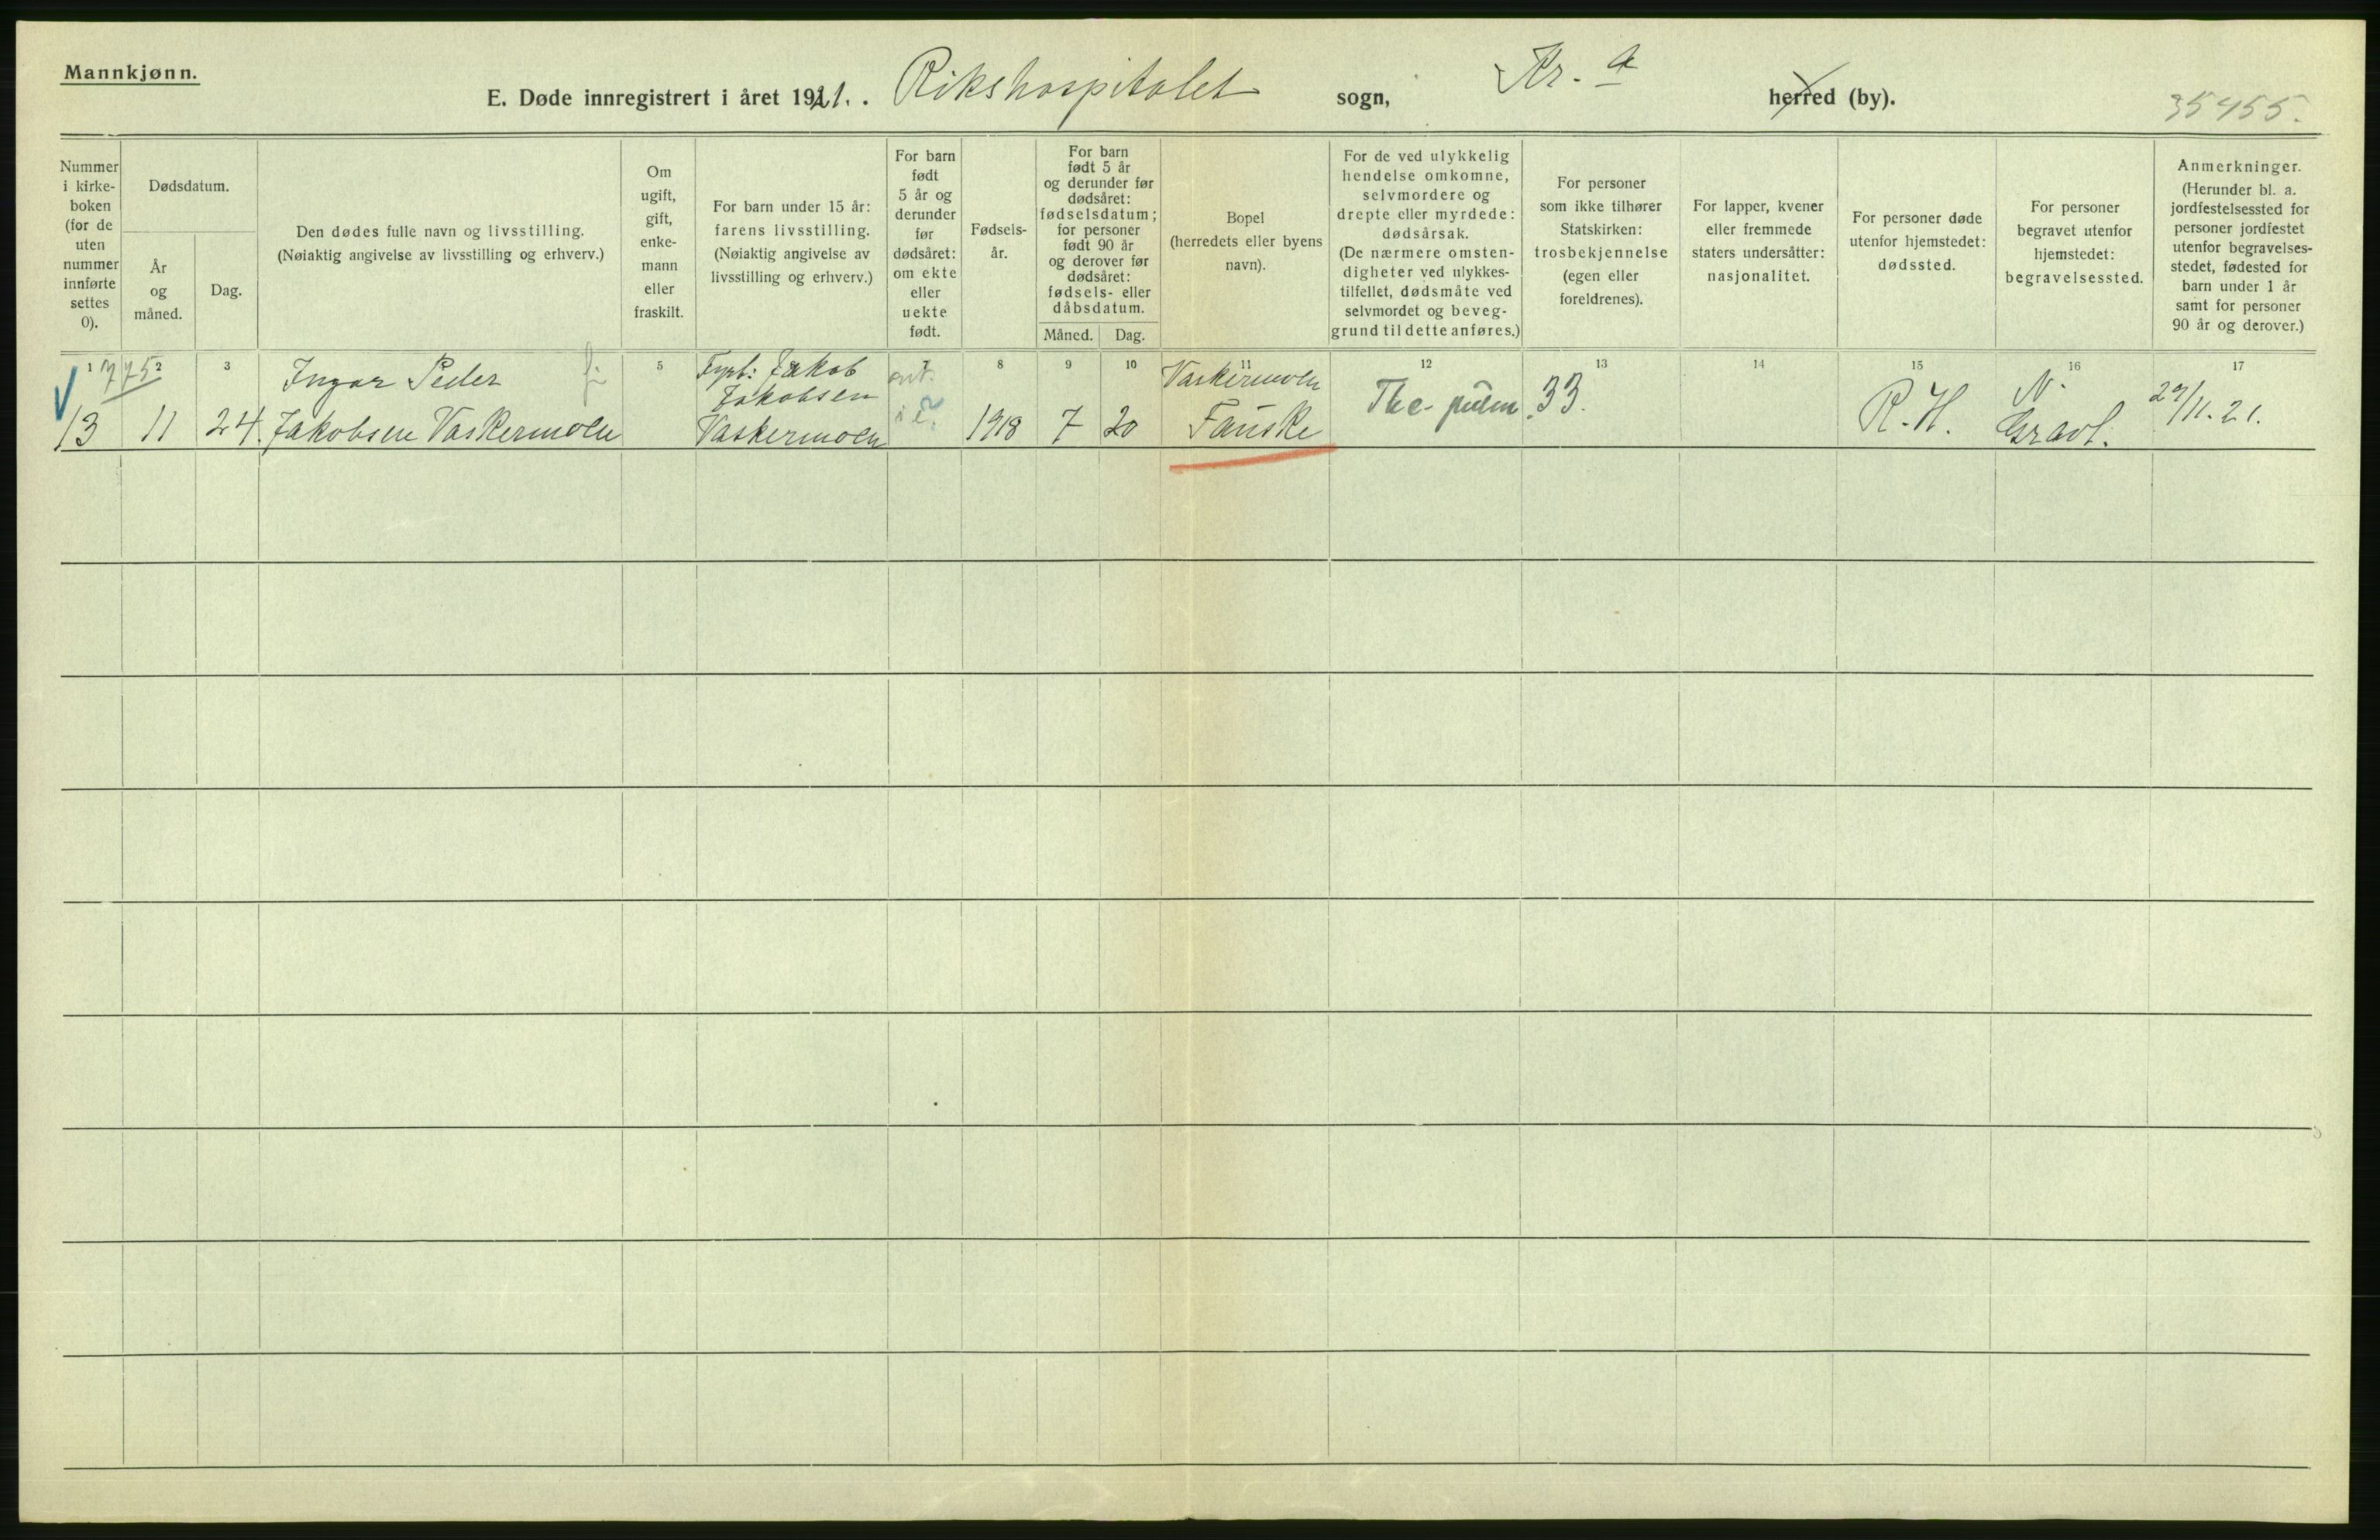 Mannkjønn.
E. Døde innregistrert i året 1921. . Rikshospitalet sogn, Kr. a herred (by).
35455.
Nummer i kirke- boken (for de uten nummer innførte settes 0).
Dødsdatum.
År og måned.
Dag.
Den dødes fulle navn og livsstilling.
(Nøiaktig angivelse av livsstilling og erhverv.)
Om ugift, gift, enke- mann eller fraskilt.
For barn under 15 år: farens livsstilling. (Nøiaktig angivelse av livsstilling og erhverv.)
For barn født 5 år og derunder før dødsåret: om ekte eller uekte født.
Fødsels- år.
For barn født 5 år og derunder før dødsåret: fødselsdatum; for personer født 90 år og derover før dødsåret: fødsels- eller dåbsdatum.
Måned. Dag.
Bopel (herredets eller byens navn).
For de ved ulykkelig hendelse omkomne, selvmordere og drepte eller myrdede: dødsårsak. (De nærmere omsten- digheter ved ulykkes- tilfellet, dødsmåte ved selvmordet og beveg- grund til dette anføres.)
For personer som ikke tilhører Statskirken: trosbekjennelse (egen eller foreldrenes).
For lapper, kvener eller fremmede staters undersåtter: nasjonalitet.
For personer døde utenfor hjemstedet: dødssted.
For personer begravet utenfor hjemstedet: begravelsessted.
Anmerkninger. (Herunder bl. a. jordfestelsessted for personer jordfestet utenfor begravelses- stedet, fødested for barn under 1 år samt for personer 90 år og derover.)
1 2 3 5 7 8 9 10 11 12 13 14 15 16 17
775
Ingar Peder
Jakob
Jakobsen
Vaskermoen
13 11 24. Jakobsen Vaskermoen
Vaskermoen
1918 7 20
Fauske
Tbc. pulm. 33.
R. H.
N. Gravl.
29/11. 21.